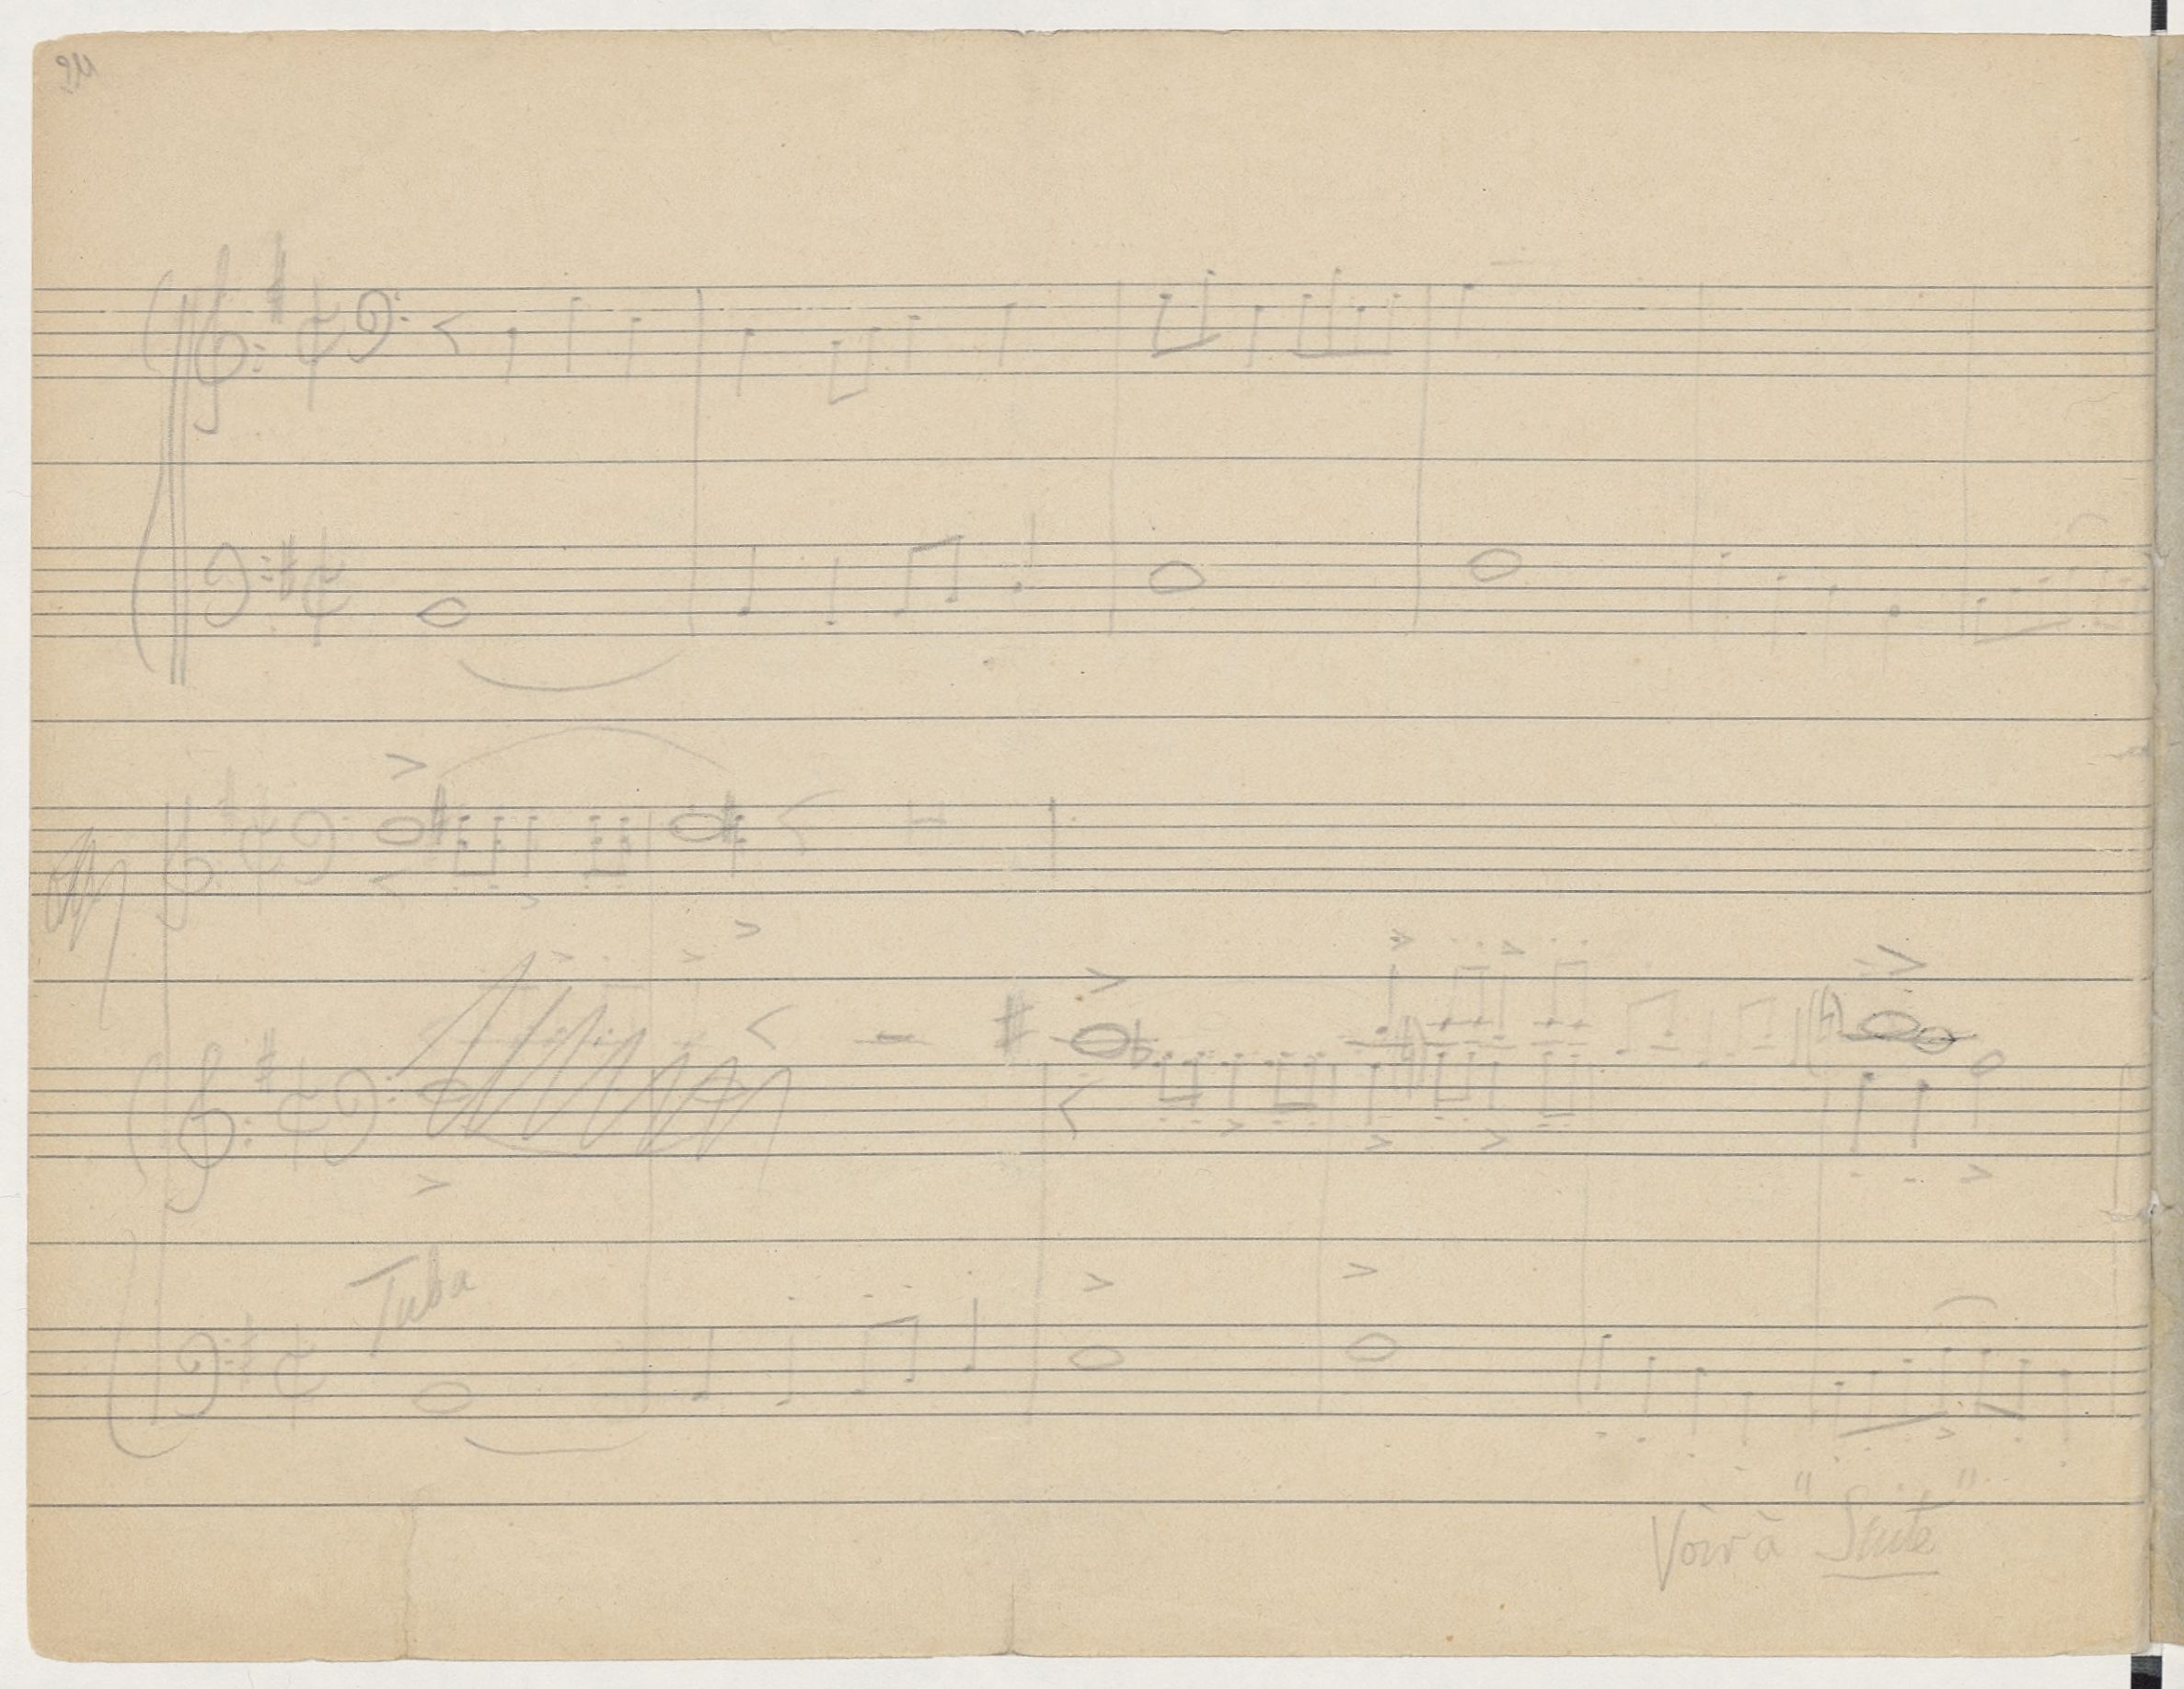 Tuba
Voir à "Suite"